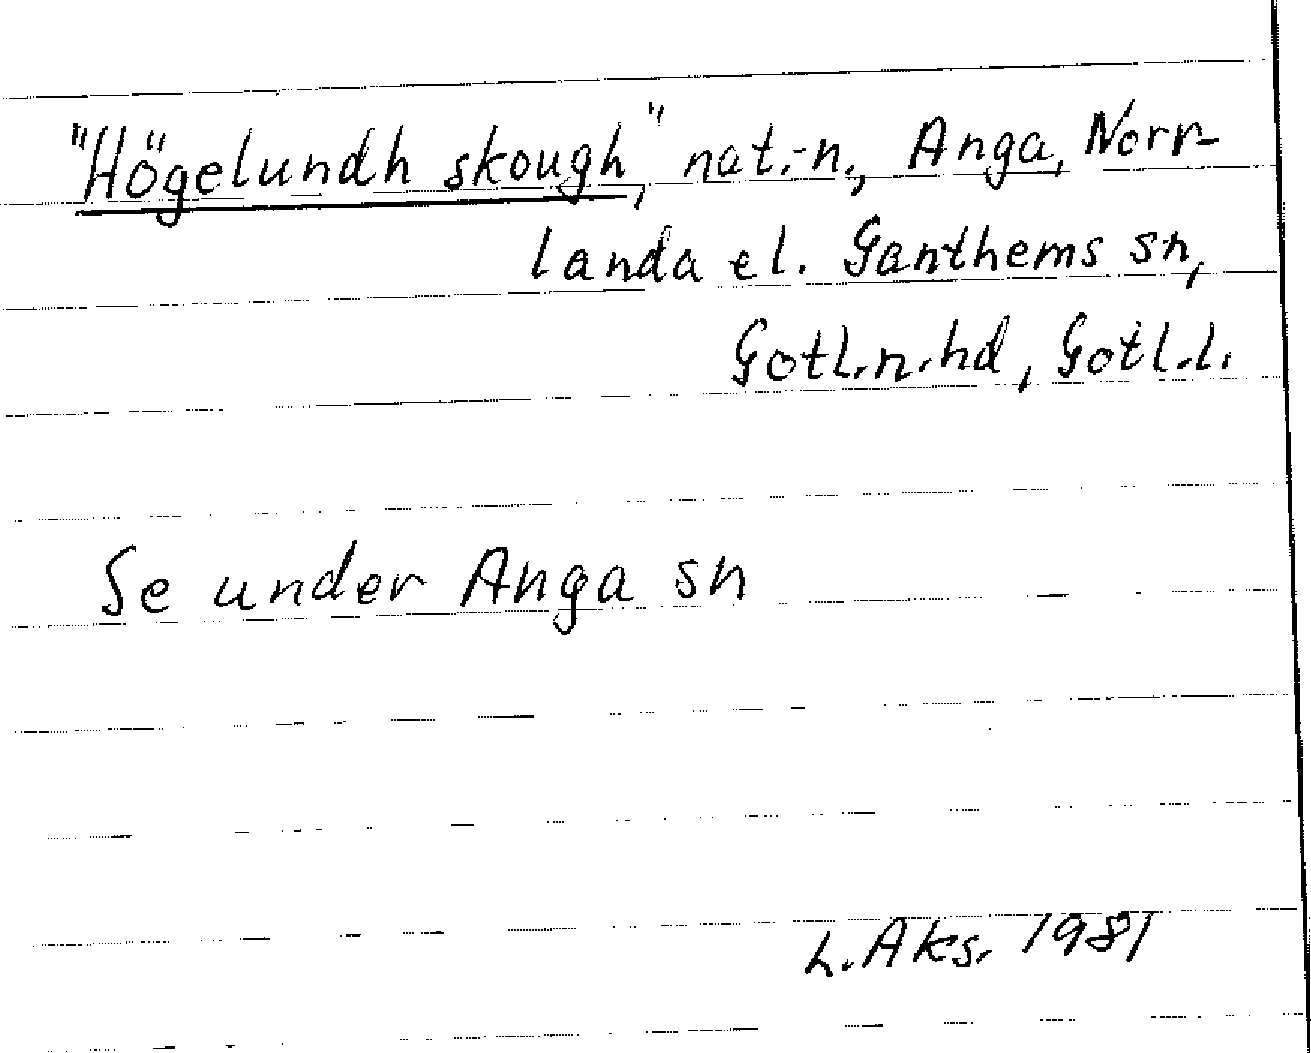 "Högelundh skough," nat.-n., Anga, Norr-
landa el. Ganthems sn,
Gotl.n.hd, Gotl.l.
Se under Anga sn
L. Aks. 1981